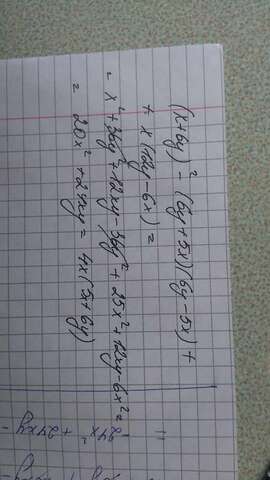 (x+6y)² - (6y+5x)(6y-5x) +
+ x(12y-6x) =
= x²+36y²+12xy-36y²+25x²+12xy-6x²=
= 20x²+24xy = 4x(5x+6y)
= -24x² + 24xy -